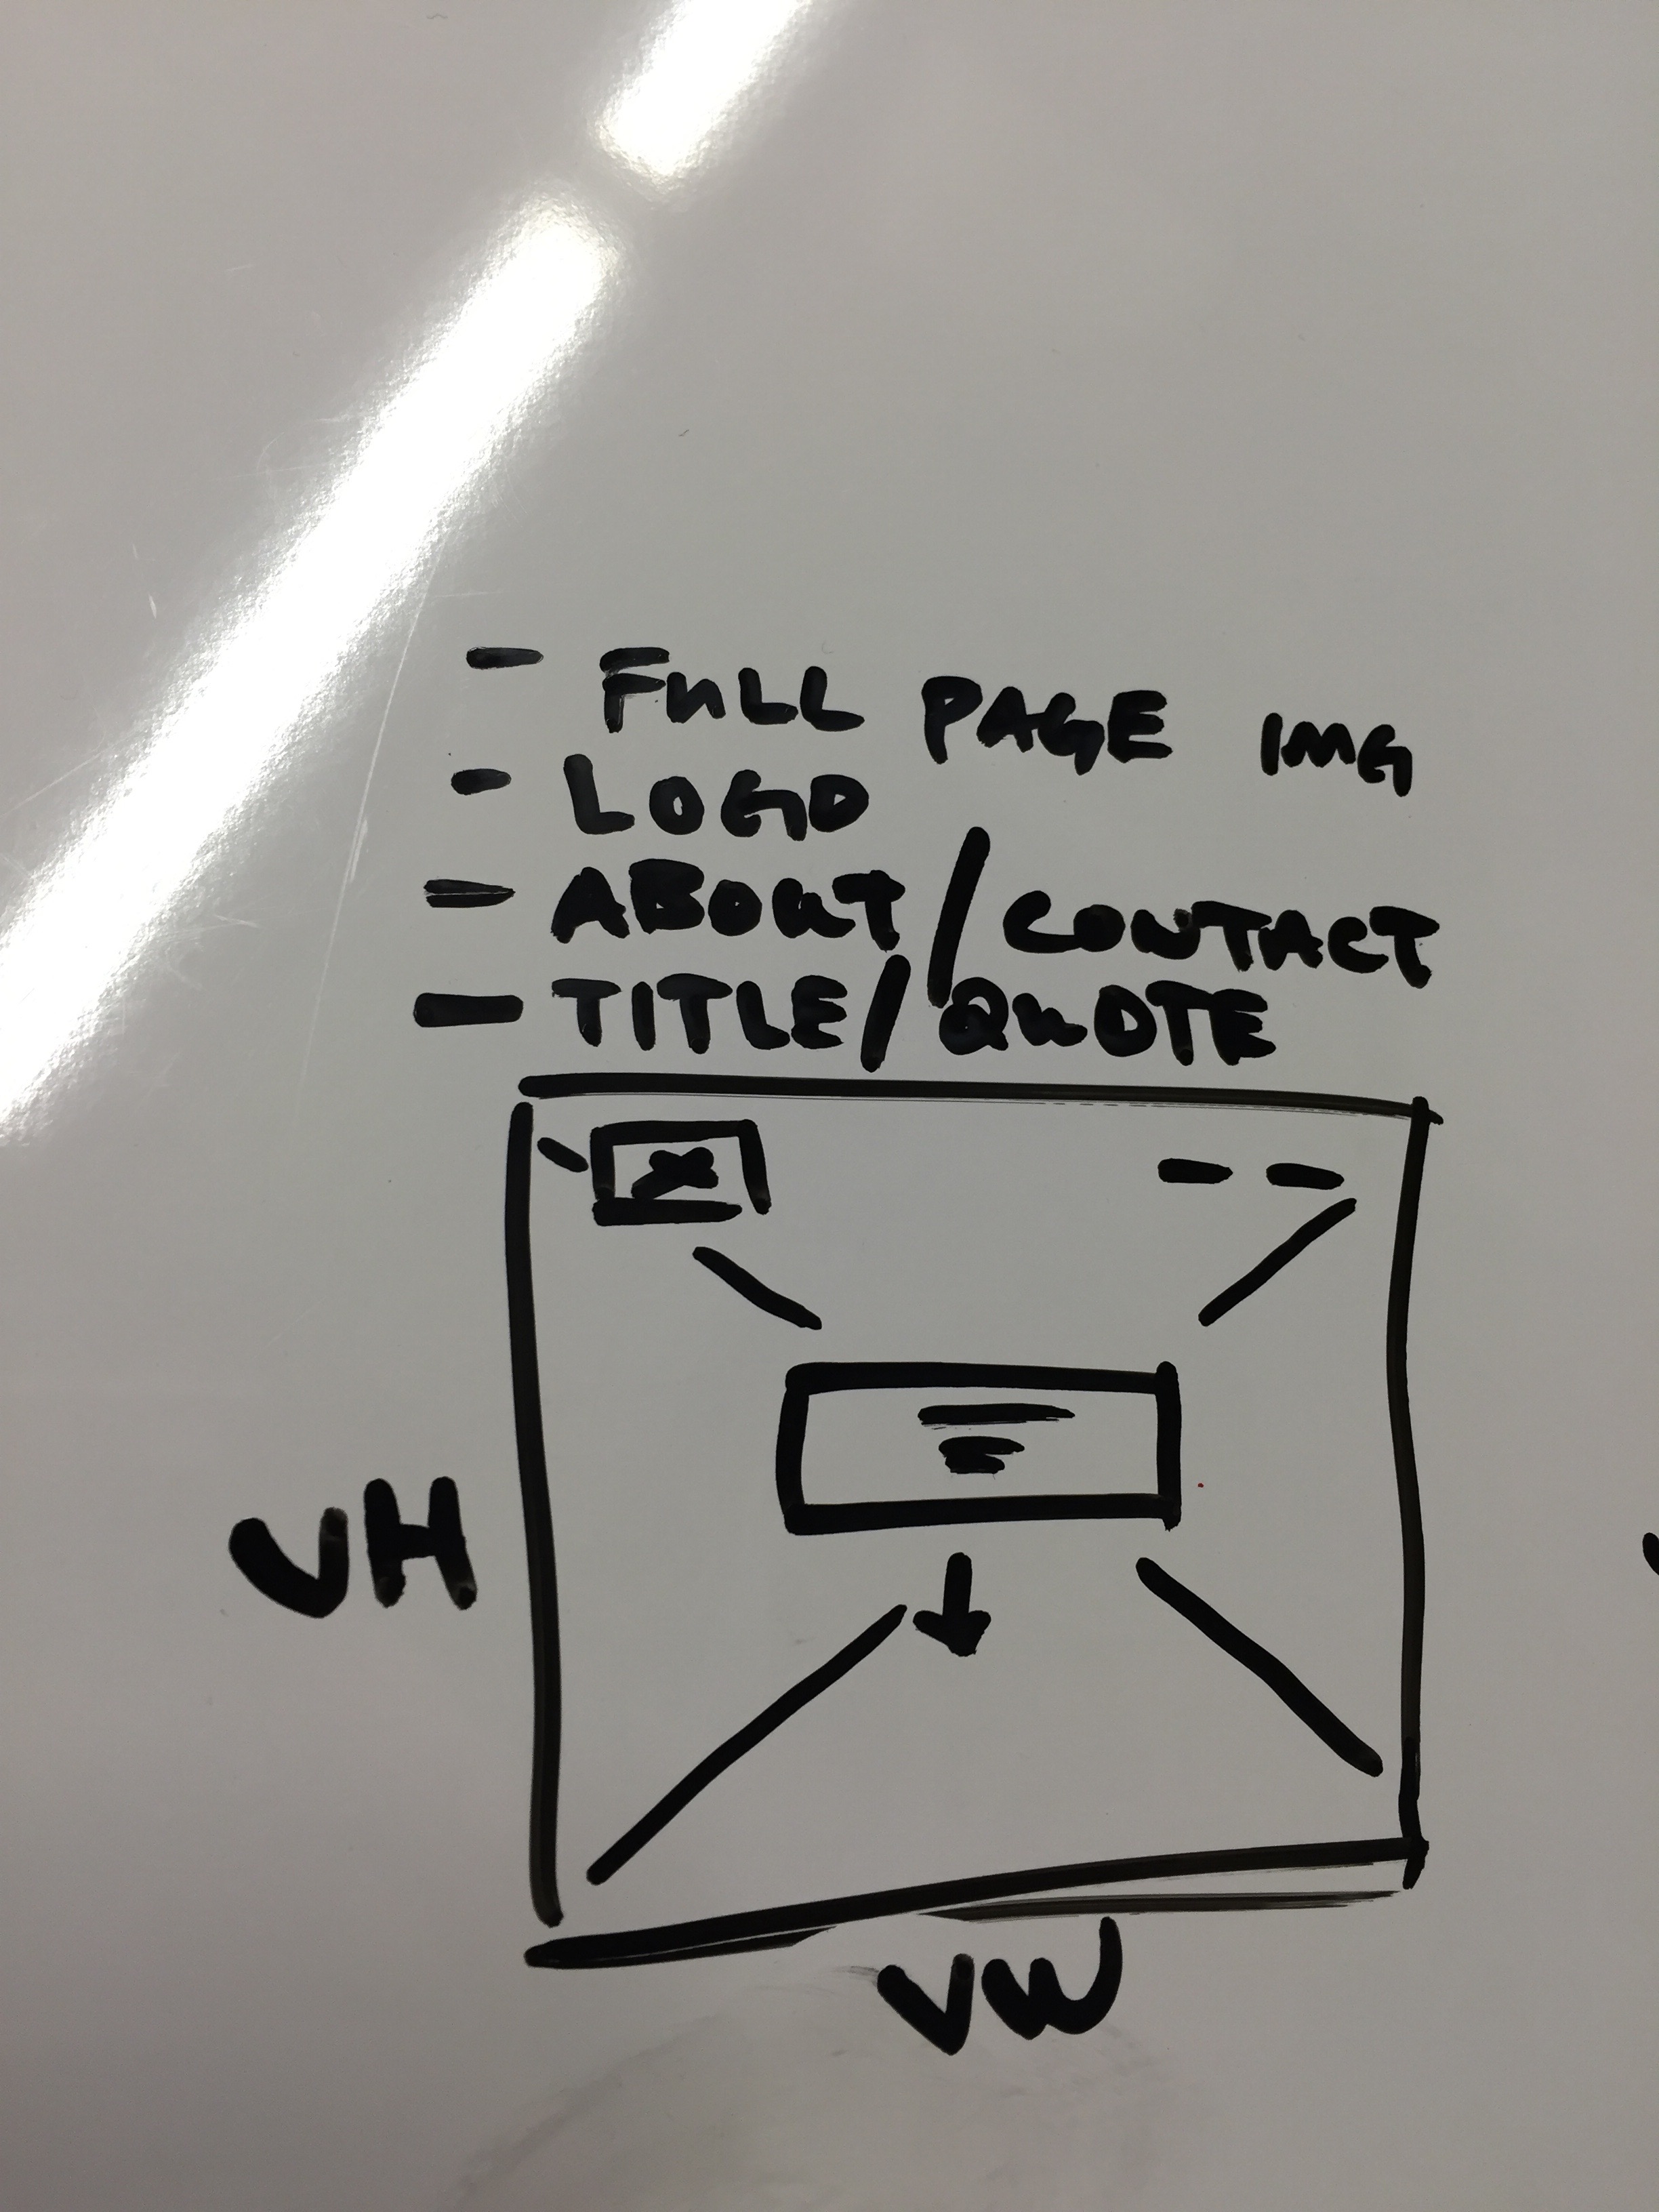 - FULL PAGE IMG
- LOGO
- ABOUT / CONTACT
- TITLE / QUOTE
VH
VW